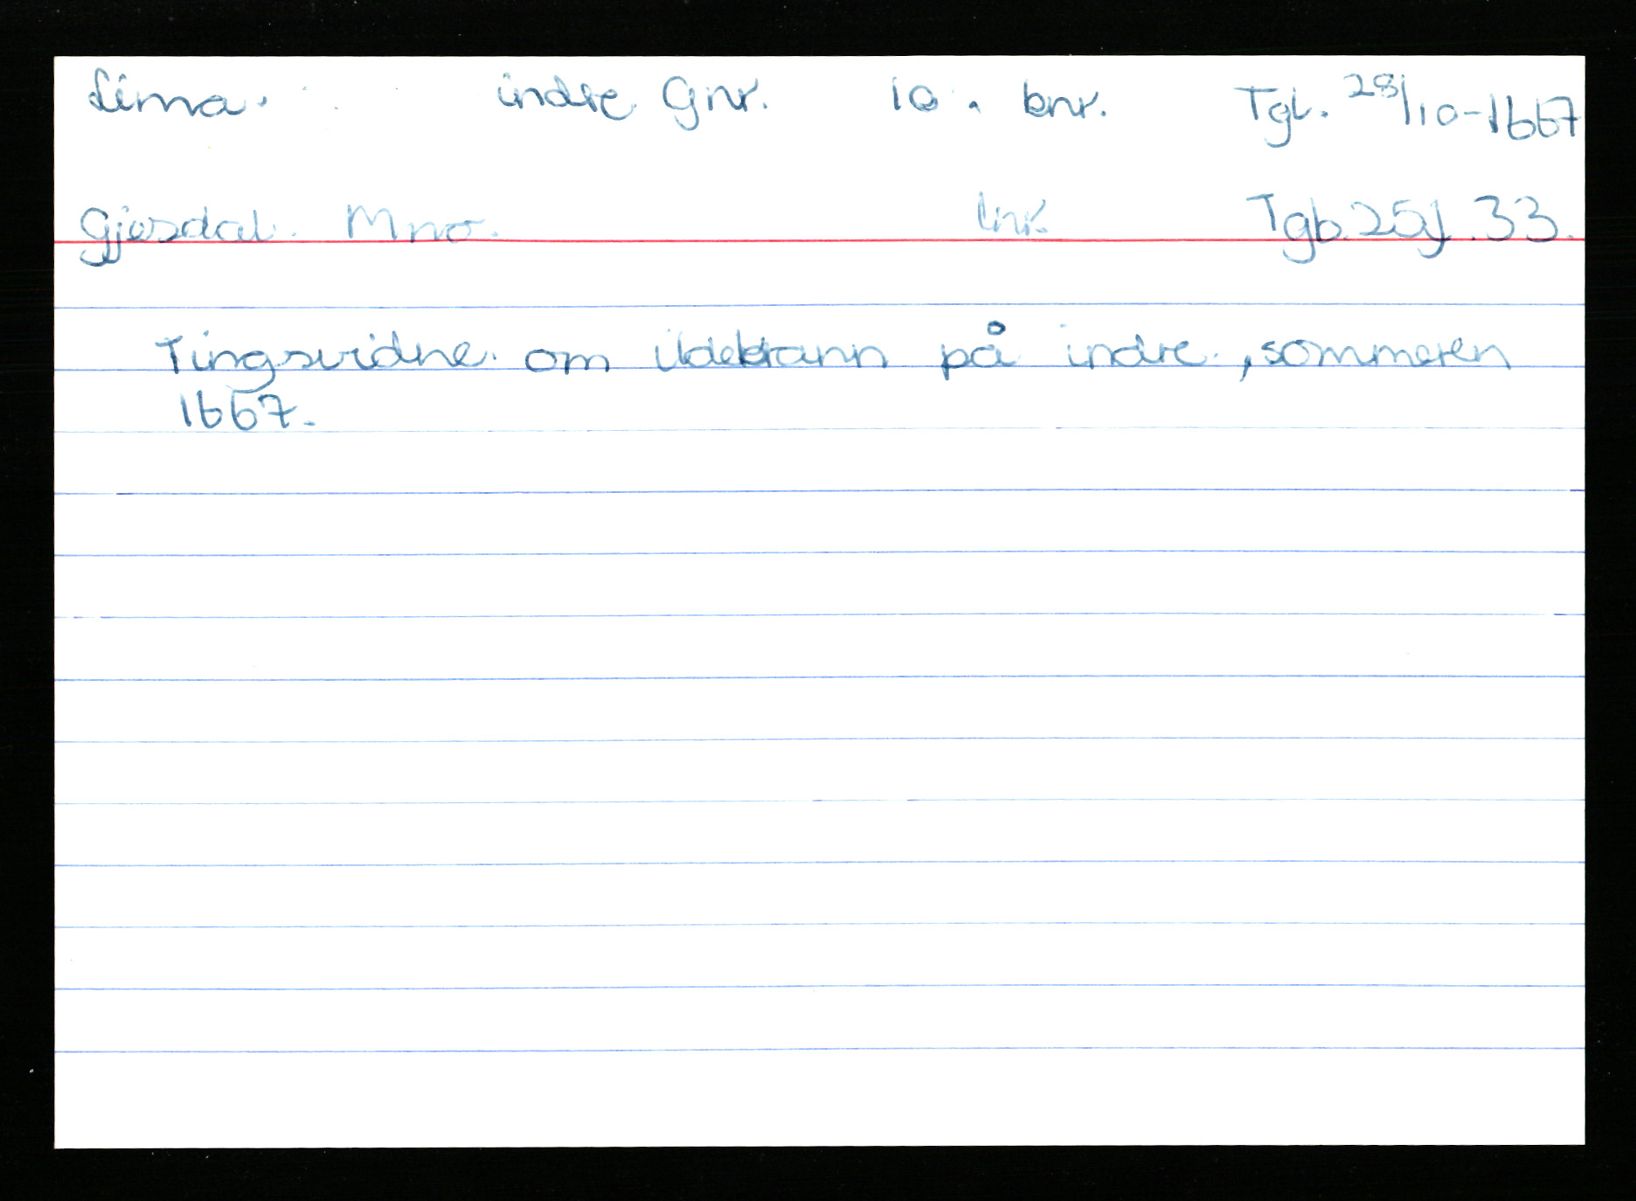 Lima. indre Gnr. 10. bnr. Tgl. 28/10-1667
Gjesdal. Mno. lnr. Tgb. 25j. 33.
Tingsvidne om ildebrann på indre, sommeren
1667.